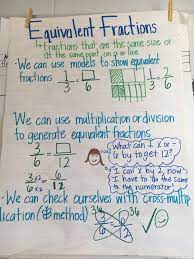 Equivalent Fractions
Fractions that are the same size or
at the same point on a line
• We can use models to show equivalent
fractions 1/3 = □/6 1/3 = 2/6
• We can use multiplication or division
to generate equivalent fractions
3/6 = □/12
What can I x or ÷
6 by to get 12?
3 x 2 6
6 x 2 12
I can x by 2, now
I have to do the same
to the numerator
• We can check ourselves with cross-multip
lication ( method) 36 36
3 6
6 12